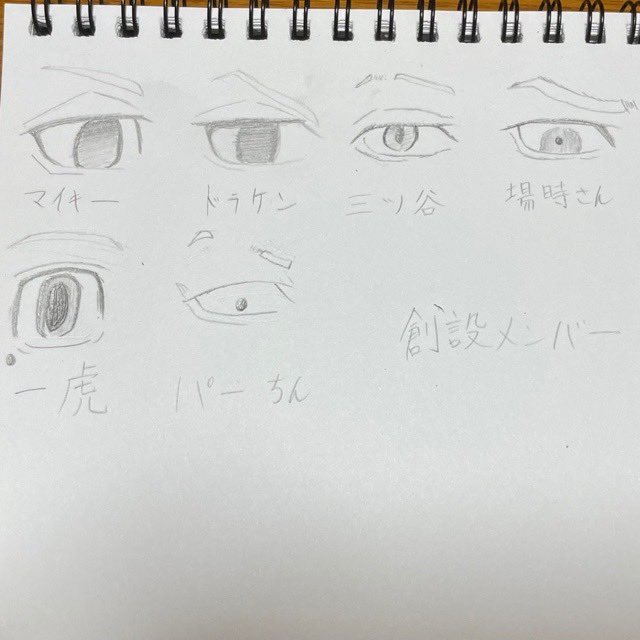 マイキー ドラケン 三ツ谷 場時さん
一虎 パーちん
創設メンバー